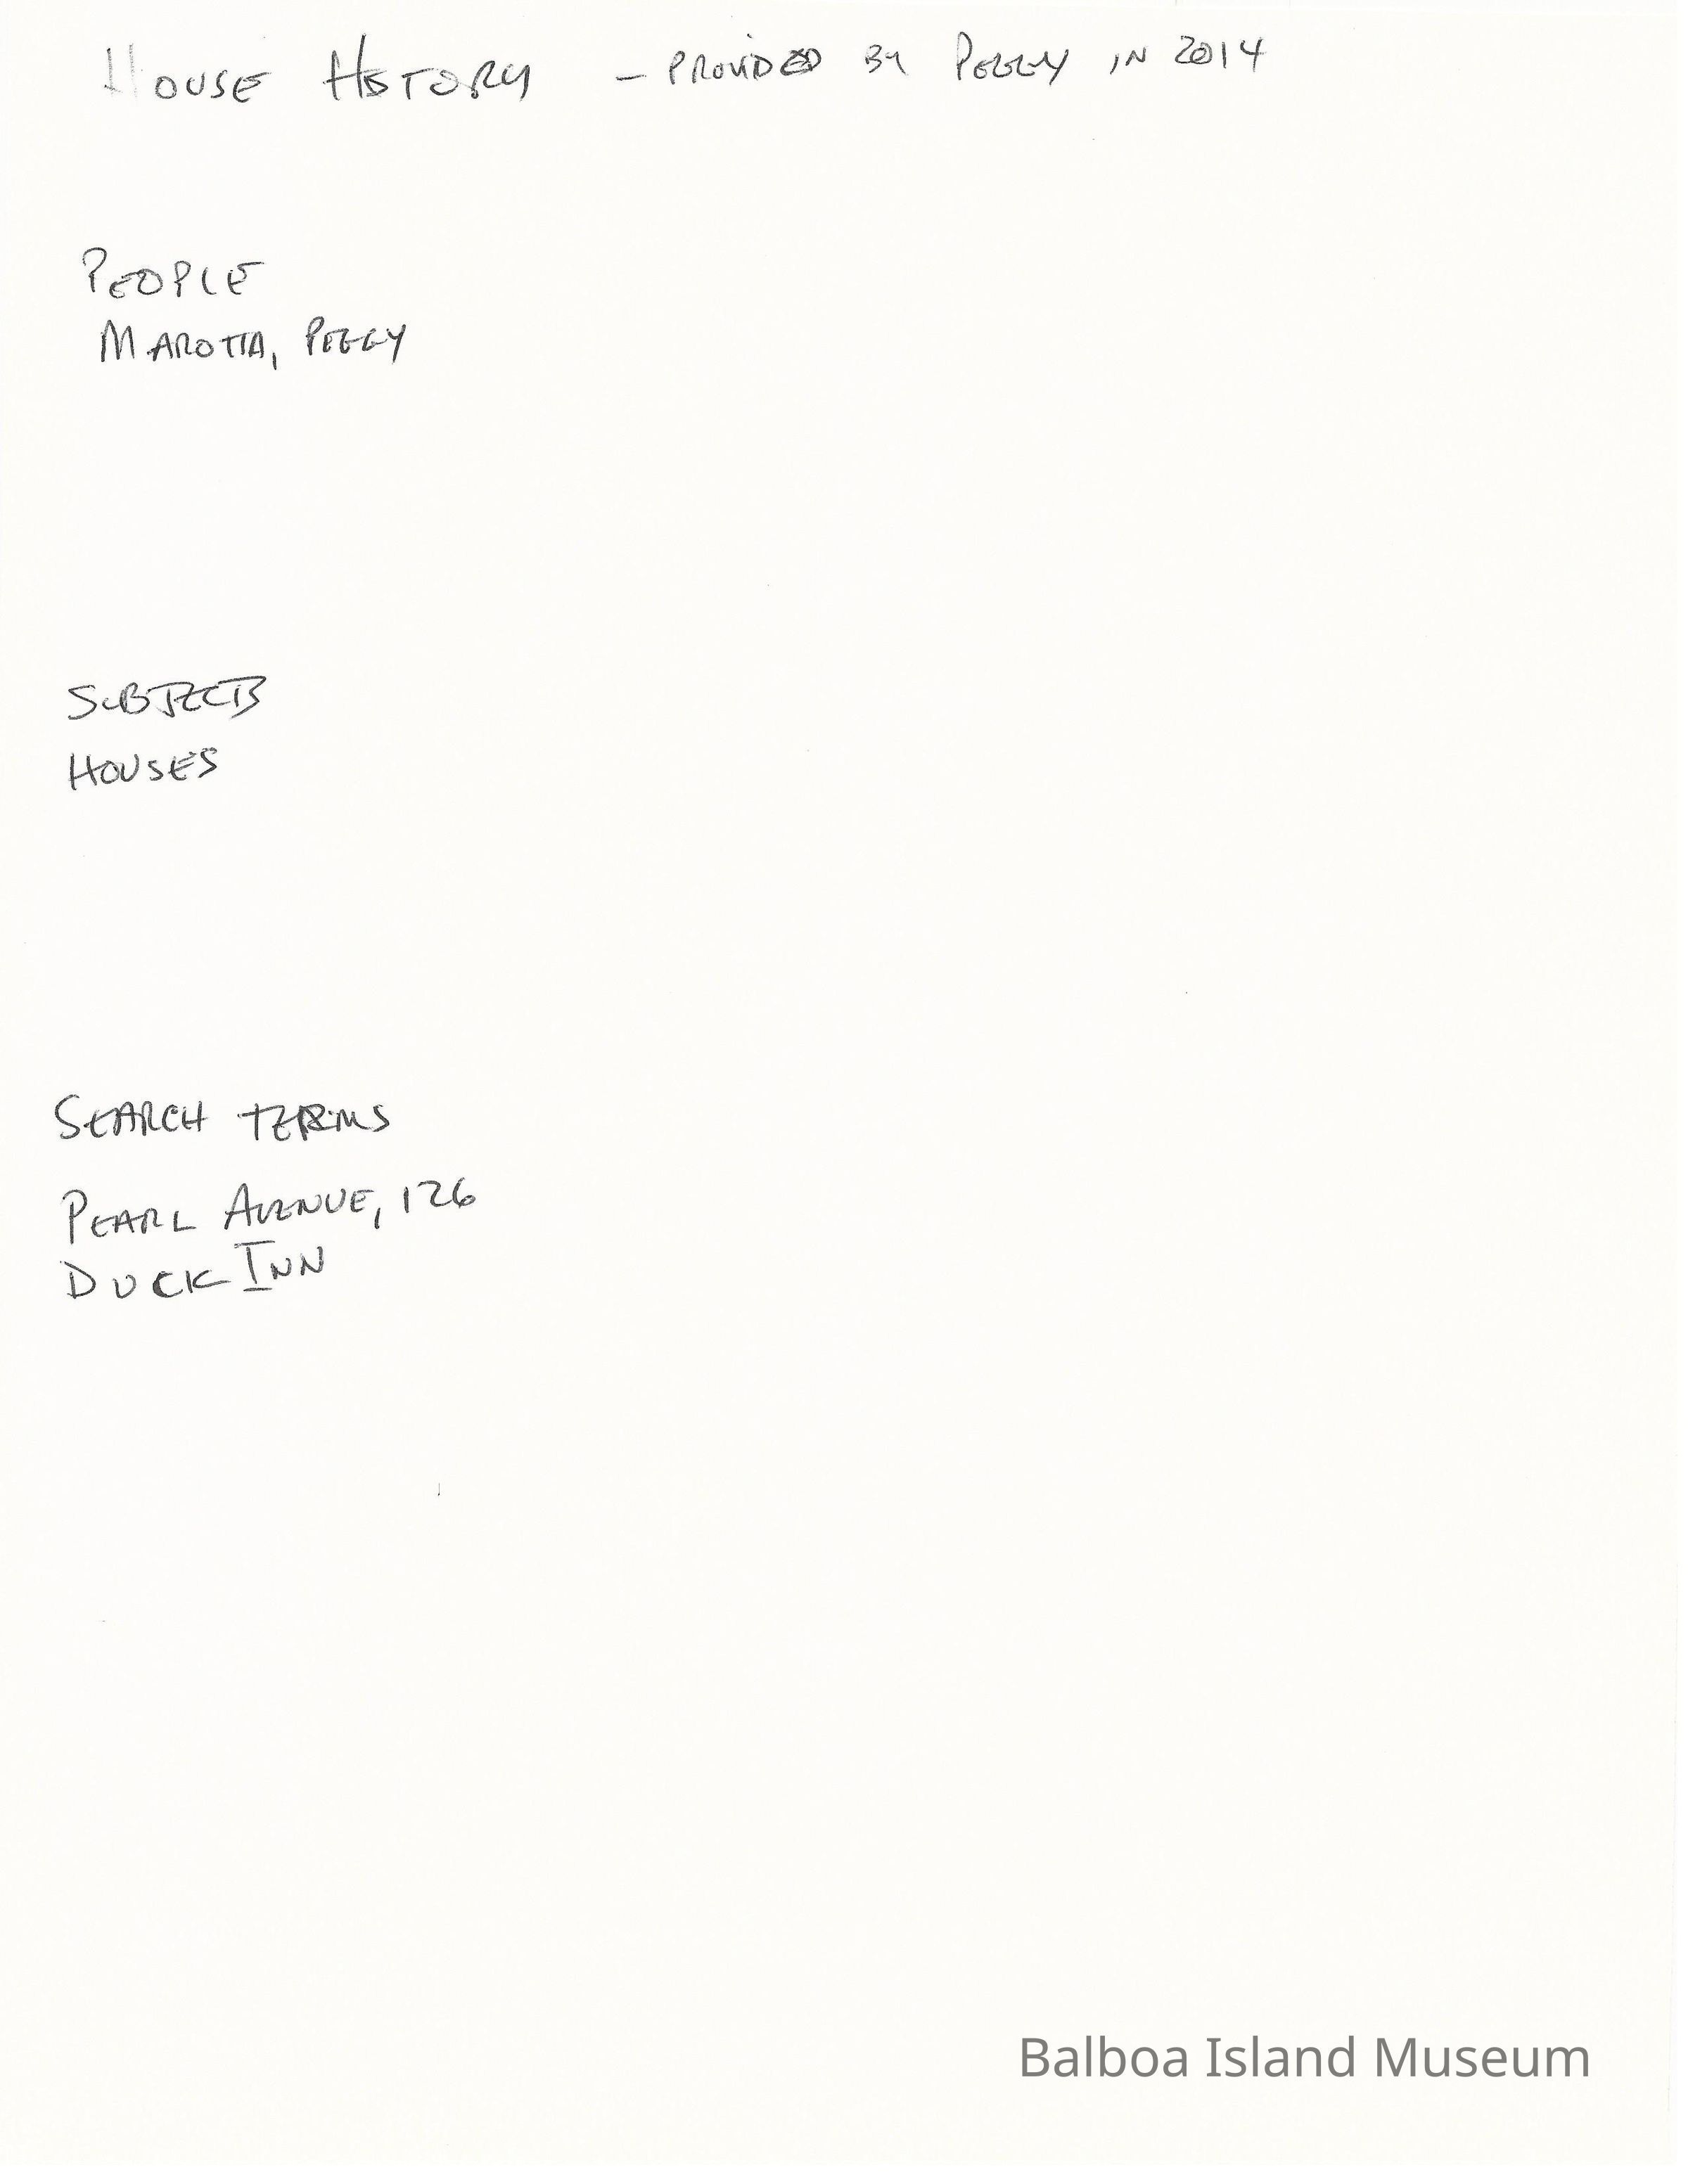 HOUSE HISTORY - PROVIDED BY PEGGY IN 2014
PEOPLE
MAROTTA, PEGGY
SUBJECTS
HOUSES
SEARCH TERMS
PEARL AVENUE, 126
DUCK INN
Balboa Island Museum